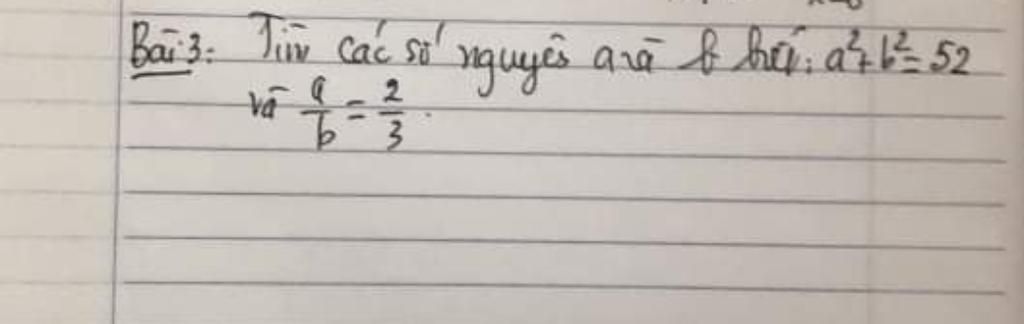 Bài 3: Tìm các số nguyên a và b biết: a² + b² = 52
và a/b = 2/3.